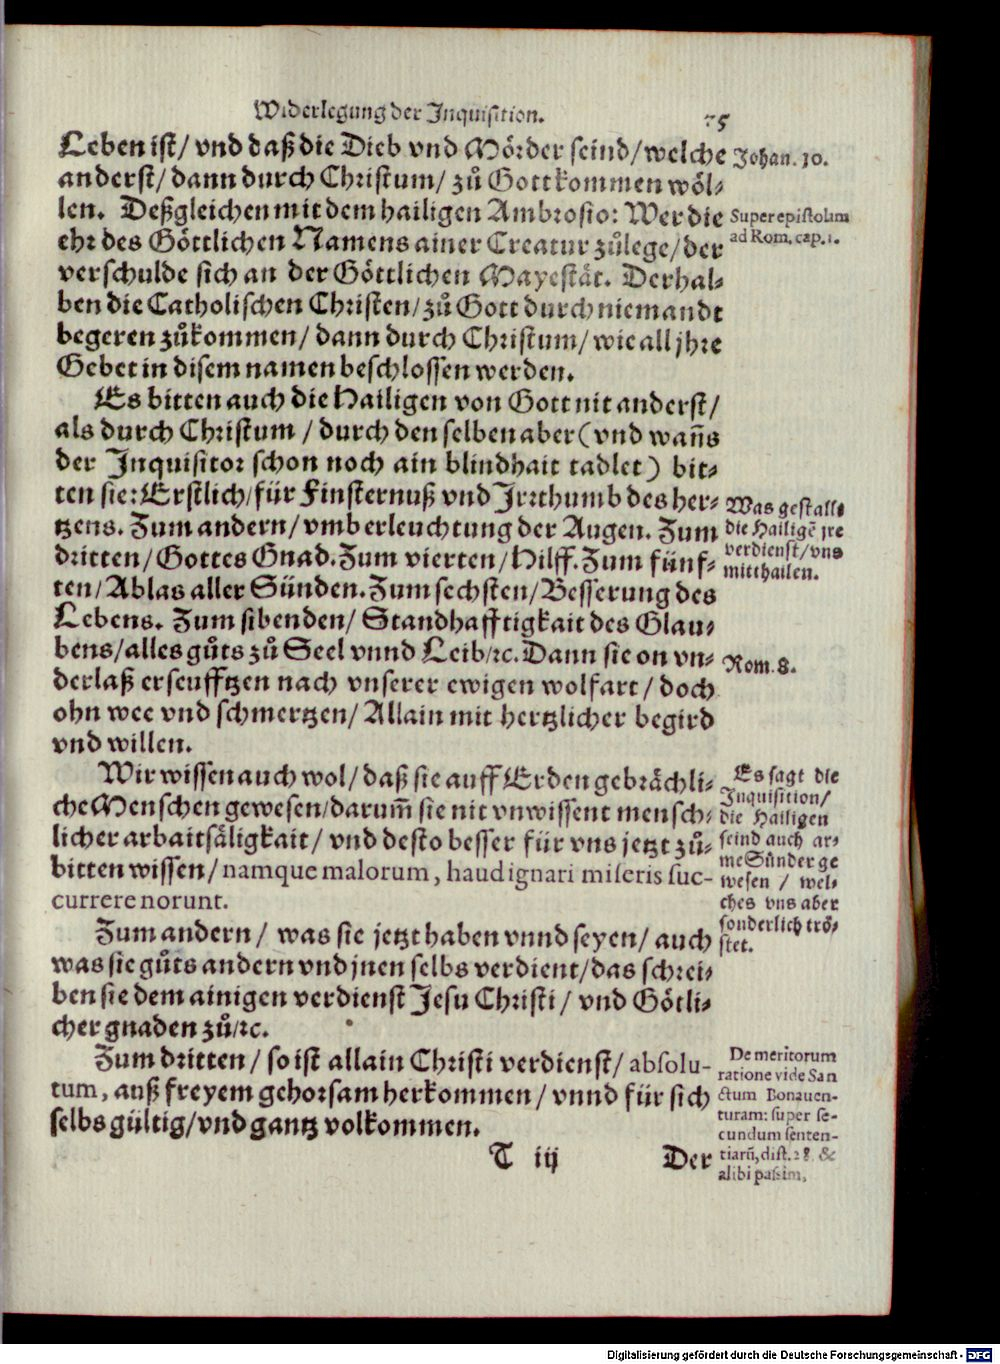 Widerlegung der Inquisition.
75
Leben ist/ vnd daß die Dieb vnd Mörder seind/welche
anderst/ dann durch Christum/ zů Gott kommen wöl-
len. Deßgleichen mit dem hailigen Ambrosio: Wer die
ehr des Göttlichen Namens ainer Creatur zůlege/der
verschulde sich an der Göttlichen Mayestät. Derhal-
ben die Catholischen Christen/zů Gott durch niemandt
begeren zůkommen/ dann durch Christum/ wie all jhre
Gebet in disem namen beschlossen werden.
Es bitten auch die Hailigen von Gott nit anderst/
als durch Christum / durch den selben aber (vnd wañs
der Inquisitor schon noch ain blindhait tadlet) bit-
ten sie: Erstlich/für Finsternuß vnd Irrthumb des her-
tzens. Zum andern/ vmb erleuchtung der Augen. Zum
dritten/ Gottes Gnad. Zum vierten/ Hilff. Zum fünf-
ten/ Ablas aller Sünden. Zum sechsten/ Besserung des
Lebens. Zum sibenden/ Standhafftigkait des Glau-
bens/alles gůts zů Seel vnnd Leib/ꝛc. Dann sie on vn-
derlaß erseufftzen nach vnserer ewigen wolfart/ doch
ohn wee vnd schmertzen/ Allain mit hertzlicher begird
vnd willen.
Wir wissen auch wol/ daß sie auff Erden gebrächli-
che Menschen gewesen/darum̃ sie nit vnwissent mensch-
licher arbaitsäligkait/ vnd desto besser für vns jetzt zů-
bitten wissen/ namque malorum, haud ignari miseris suc-
currere norunt.
Zum andern/ was sie jetzt haben vnnd seyen/ auch
was sie gůts andern vnd jnen selbs verdient/das schrei-
ben sie dem ainigen verdienst Jesu Christi/ vnd Götli-
cher gnaden zů/ꝛc.
Zum dritten/ so ist allain Christi verdienst/ absolu-
tum, auß freyem gehorsam herkommen/ vnnd für sich
selbs gültig/vnd gantz volkommen.
T iij
Der
Johan. 10.
Super epistolam
ad Rom. cap. 1.
Was gestallt
die Hailigẽ jre
verdienst/vns
mitthailen.
Rom. 8.
Es sagt die
Inquisition/
die Hailigen
seind auch ar-
me Sünder ge
wesen / wel-
ches vns aber
sonderlich trö-
stet.
De meritorum
ratione vide San
ctum Bonauen-
turam: super se-
cundum senten-
tiarũ, dist. 28. &
alibi passim.
Digitalisierung gefördert durch die Deutsche Forschungsgemeinschaft - DFG